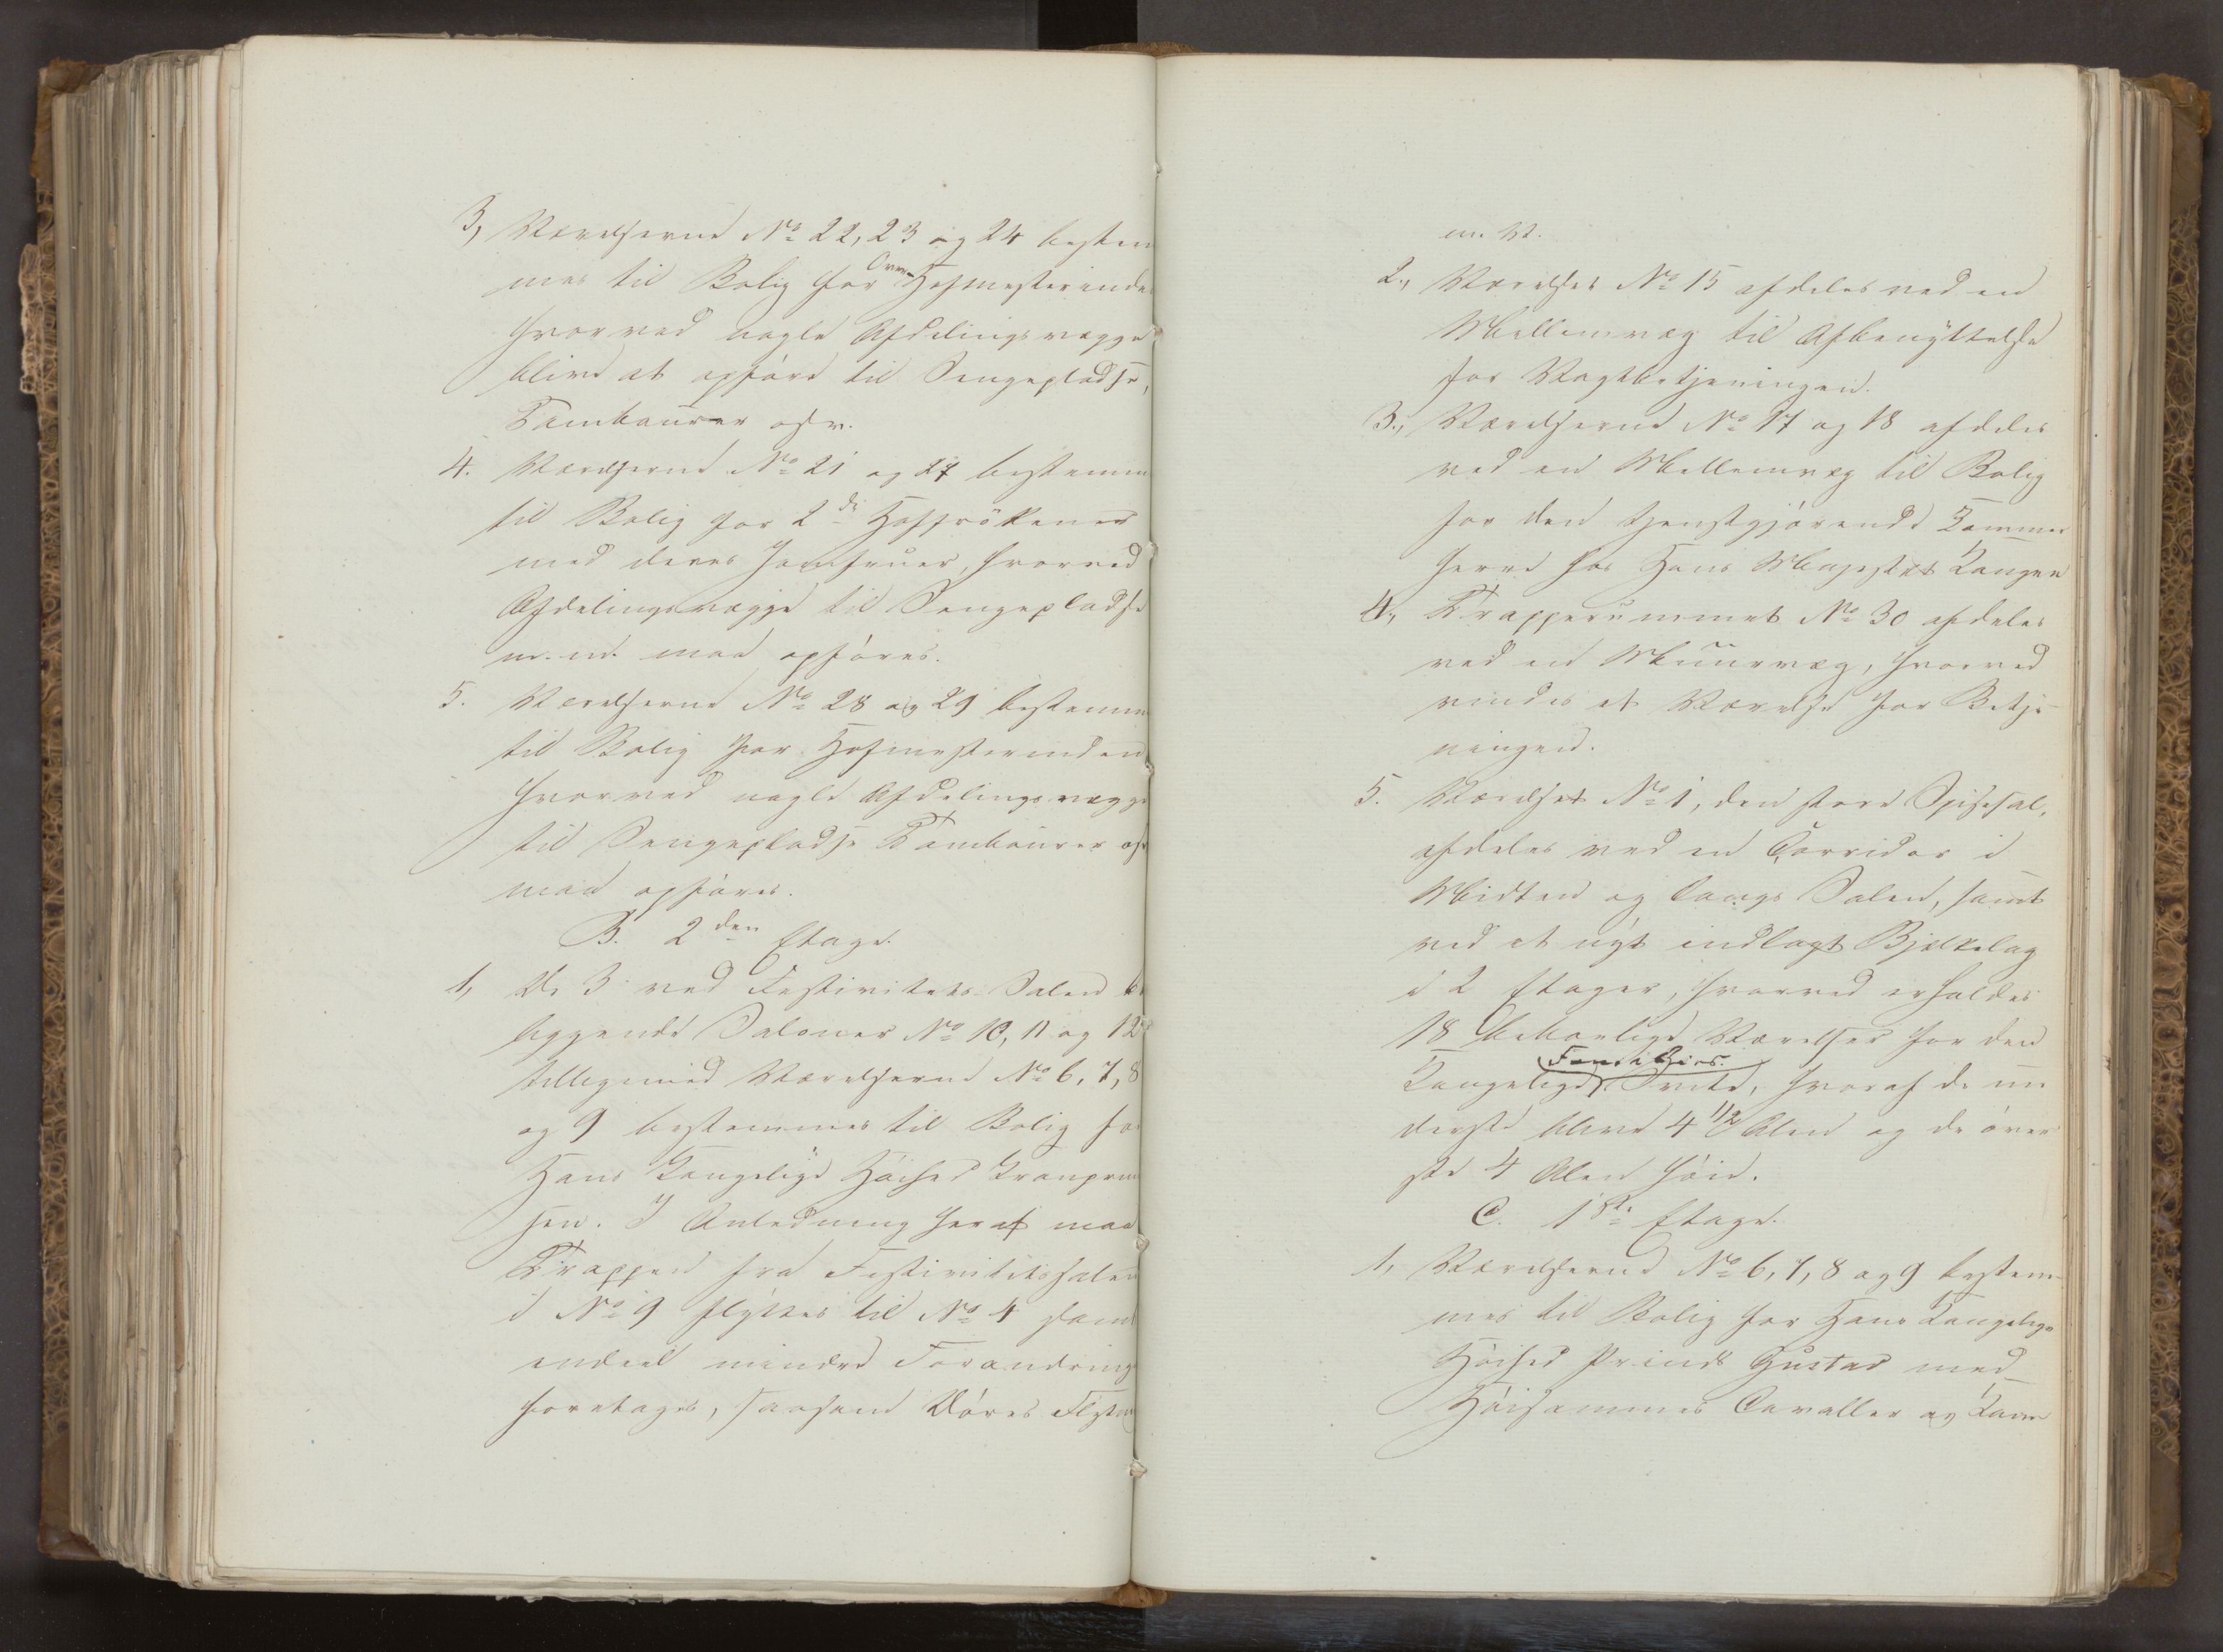 3, Værelserne No 22, 23 og 24 bestem
mes til Bolig for Over Hofmesterinde
hvorved nogle Afdelingsvægge
blive at opføre til Sengepladse,
Tambourer osv.
4. Værelserne No 21 og 27 bestemm
til Bolig for 2de Hoffrökener
med deres Jomfruer, hvorved
Afdelingsvægge til Sengepladse
m. m. maa opføres.
5. Værelserne No 28 og 29 bestemm
til Bolig for Hofmesterinden
hvorved nogle Afdelingsvægge
til Sengepladse Tambourer os
maa opføres.
B. 2den Etage.
1, De 3 ved Festivitets Salen be
liggende Saloner No 10, 11 og 12
tilligemed Værelserne No 6, 7, 8
og 9 bestemmes til Bolig for
Hans Kongelige Höihed Kronprin
sen. I Anledning heraf maa
Trappen fra Festivitetssalen
i No 9 flyttes til No 4 samt
endeel mindre Forandring
foretages, saasom Döres Flytn
m. V.
2, Værelset No 15 afdeles ved en
Mellemvæg til Afbenyttelse
for Vagtbetjeningen.
3, Værelserne No 17 og 18 afdeles
ved en Mellemvæg til Bolig
for den tjenstgjörende Kammer
herre hos Hans Majestæt Kongen
4, Trapperummet No 30 afdeles
ved en Muurvæg, hvorved
vindes et Værelse for Betje
ningen.
5. Værelset No 1, den store Spisesal,
afdeles ved en Corridor i
Midten og langs Salen, samt
ved et nyt indlagt Bjælkelag
i 2 Etager, hvorved erholdes
18 beboelige Værelser for den
Kongelige Families Svite, hvoraf de un
derste blive 4 1/2 Alen og de över
ste 4 Alen höie.
C. 1ste Etage.
1, Værelserne No 6, 7, 8 og 9 bestem
mes til Bolig for Hans Kongelige
Höihed Prinds Gustav med
Höisammes Cavaller og Kam